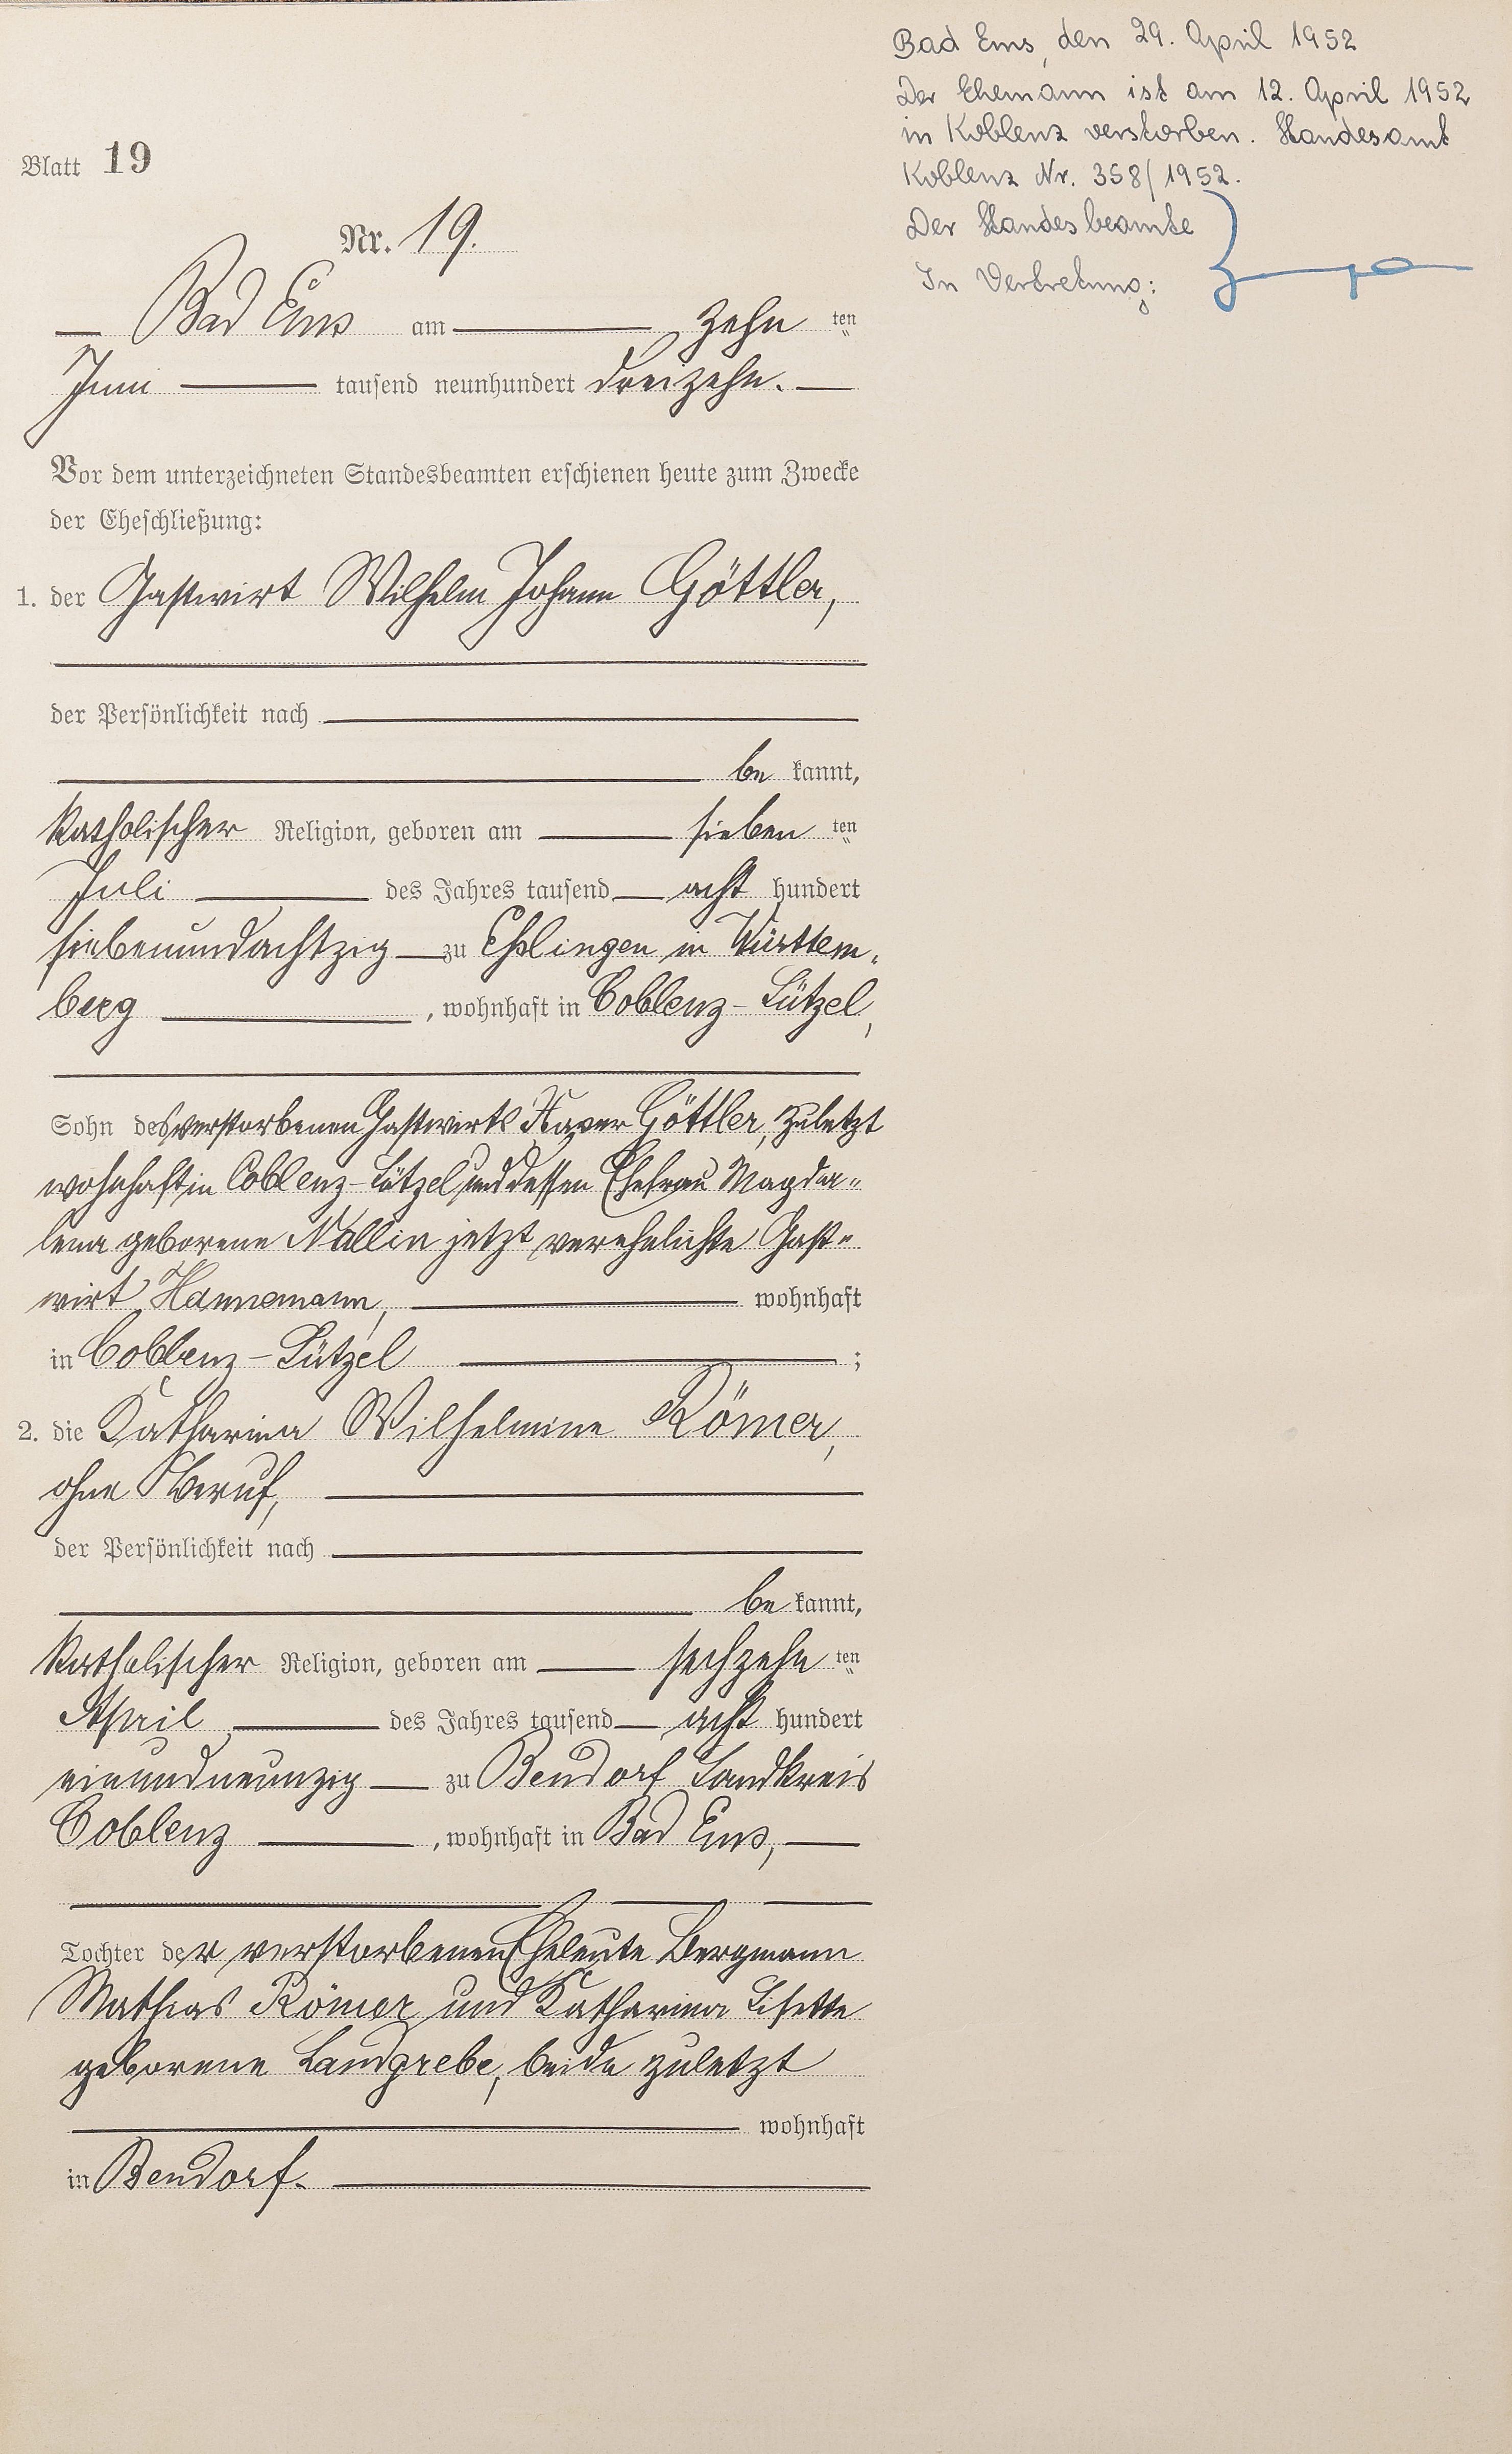 Blatt 19
Nr. 19.
Bad Ems am zehn ten
Juni tausend neunhundert dreizehn.
Vor dem unterzeichneten Standesbeamten erschienen heute zum Zwecke
der Eheschließung:
1. der Gastwirt Wilhelm Johann Göttler,
der Persönlichkeit nach
be kannt,
katholischer Religion, geboren am sieben ten
Juli des Jahres tausend acht hundert
siebenundachtzig zu Eßlingen in Württem-
berg, wohnhaft in Coblenz-Lützel,
Sohn des verstorbenen Gastwirts Xaver Göttler, zuletzt
wohnhaft in Coblenz-Lützel und dessen Ehefrau Magda-
lena geborene Nallin jetzt verehelichte Gast-
wirt Hannemann, wohnhaft
in Coblenz-Lützel;
2. die Katharina Wilhelmine Römer,
ohne Beruf,
der Persönlichkeit nach
be kannt,
katholischer Religion, geboren am sechzehn ten
April des Jahres tausend acht hundert
einundneunzig zu Bendorf Landkreis
Coblenz, wohnhaft in Bad Ems,
Tochter der verstorbenen Eheleute Bergmann
Mathias Römer und Katharina Lisette
geborene Landgrebe, beide zuletzt
wohnhaft
in Bendorf.
Bad Ems, den 29. April 1952
Der Ehemann ist am 12. April 1952
in Koblenz verstorben. Standesamt
Koblenz Nr. 358/1952.
Der Standesbeamte
In Vertretung: